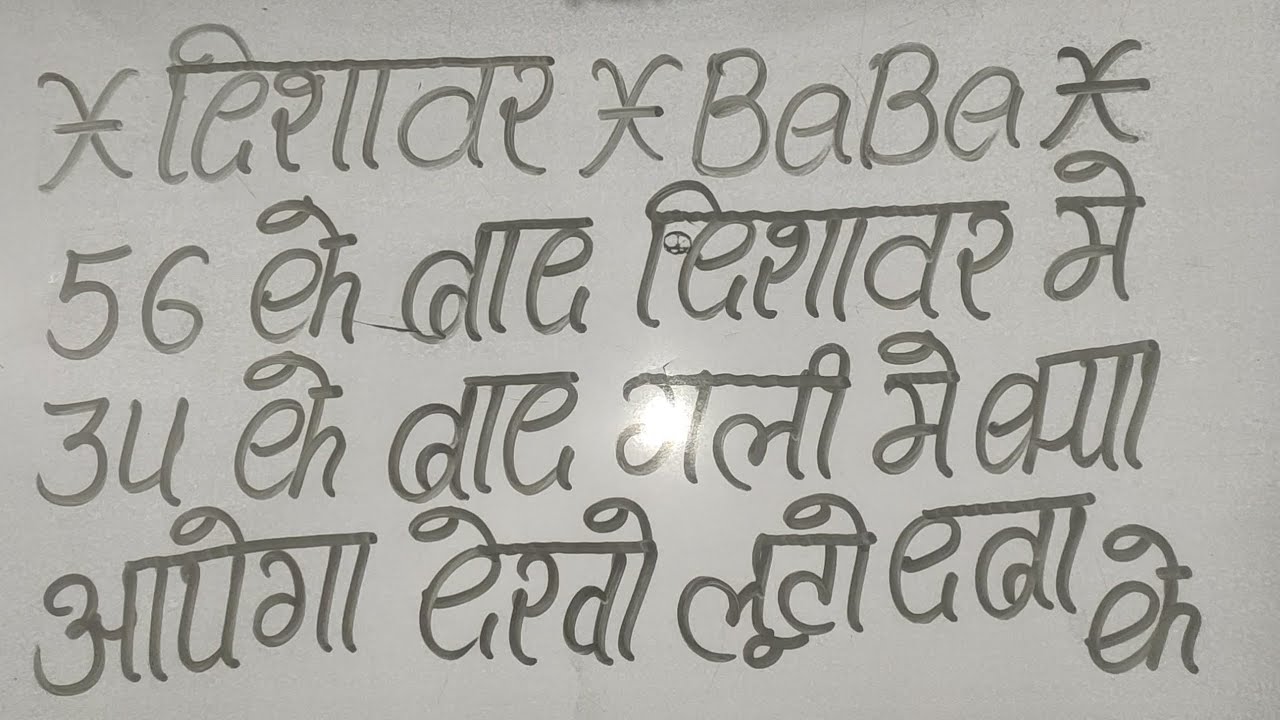 * दिशावर * BaBa *
56 के बाद दिशावर मे
34 के बाद गली मे क्या
आयेगा देखो लूटो दबा के